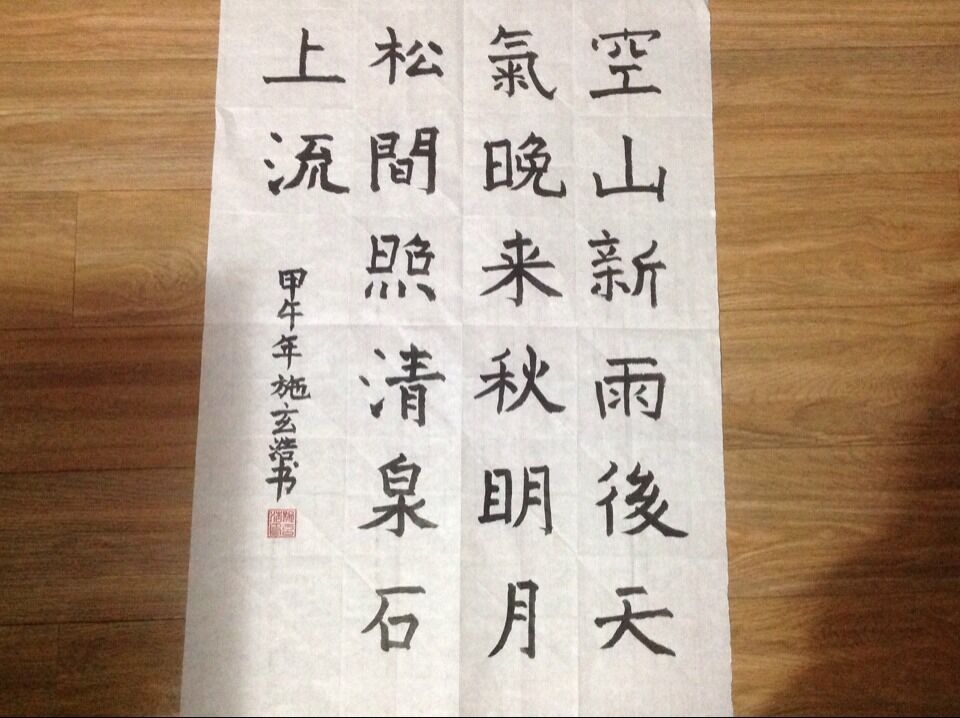 空山新雨後天
氣晚来秋明月
松間照清泉石
上流
甲午年施玄浩书